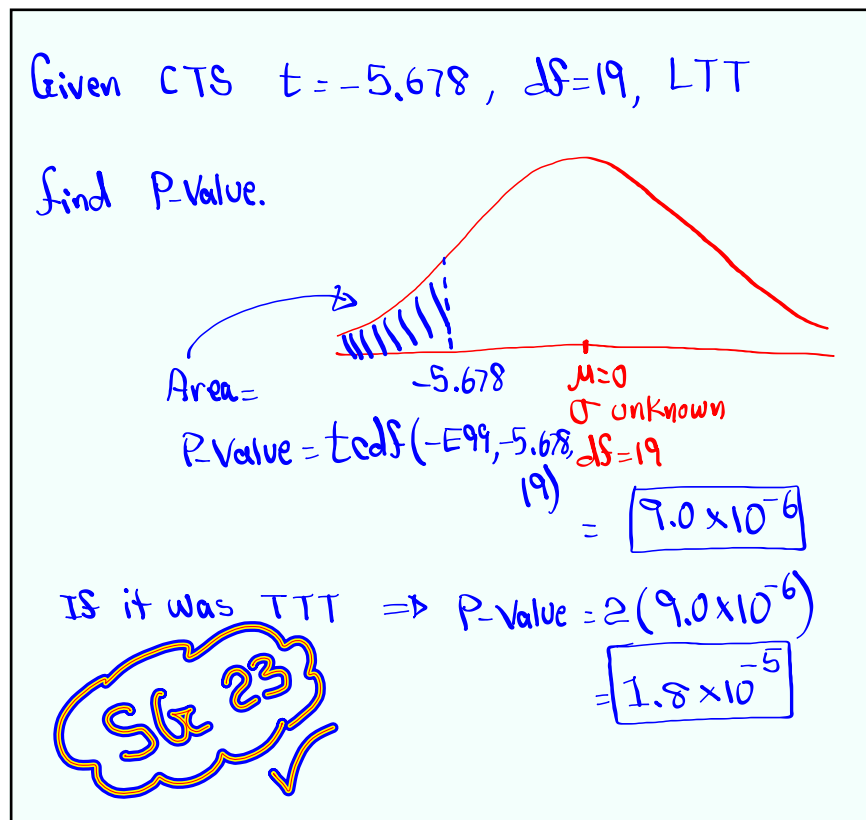 Given CTS t=-5.678, df=19, LTT
find P-Value.
Area=
-5.678
μ=0
σ unknown
df=19
P-Value = tcdf(-E99,-5.678,
19)
= 9.0×10⁻⁶
If it was TTT ⇒ P-Value = 2(9.0×10⁻⁶)
= 1.8×10⁻⁵
SG 23